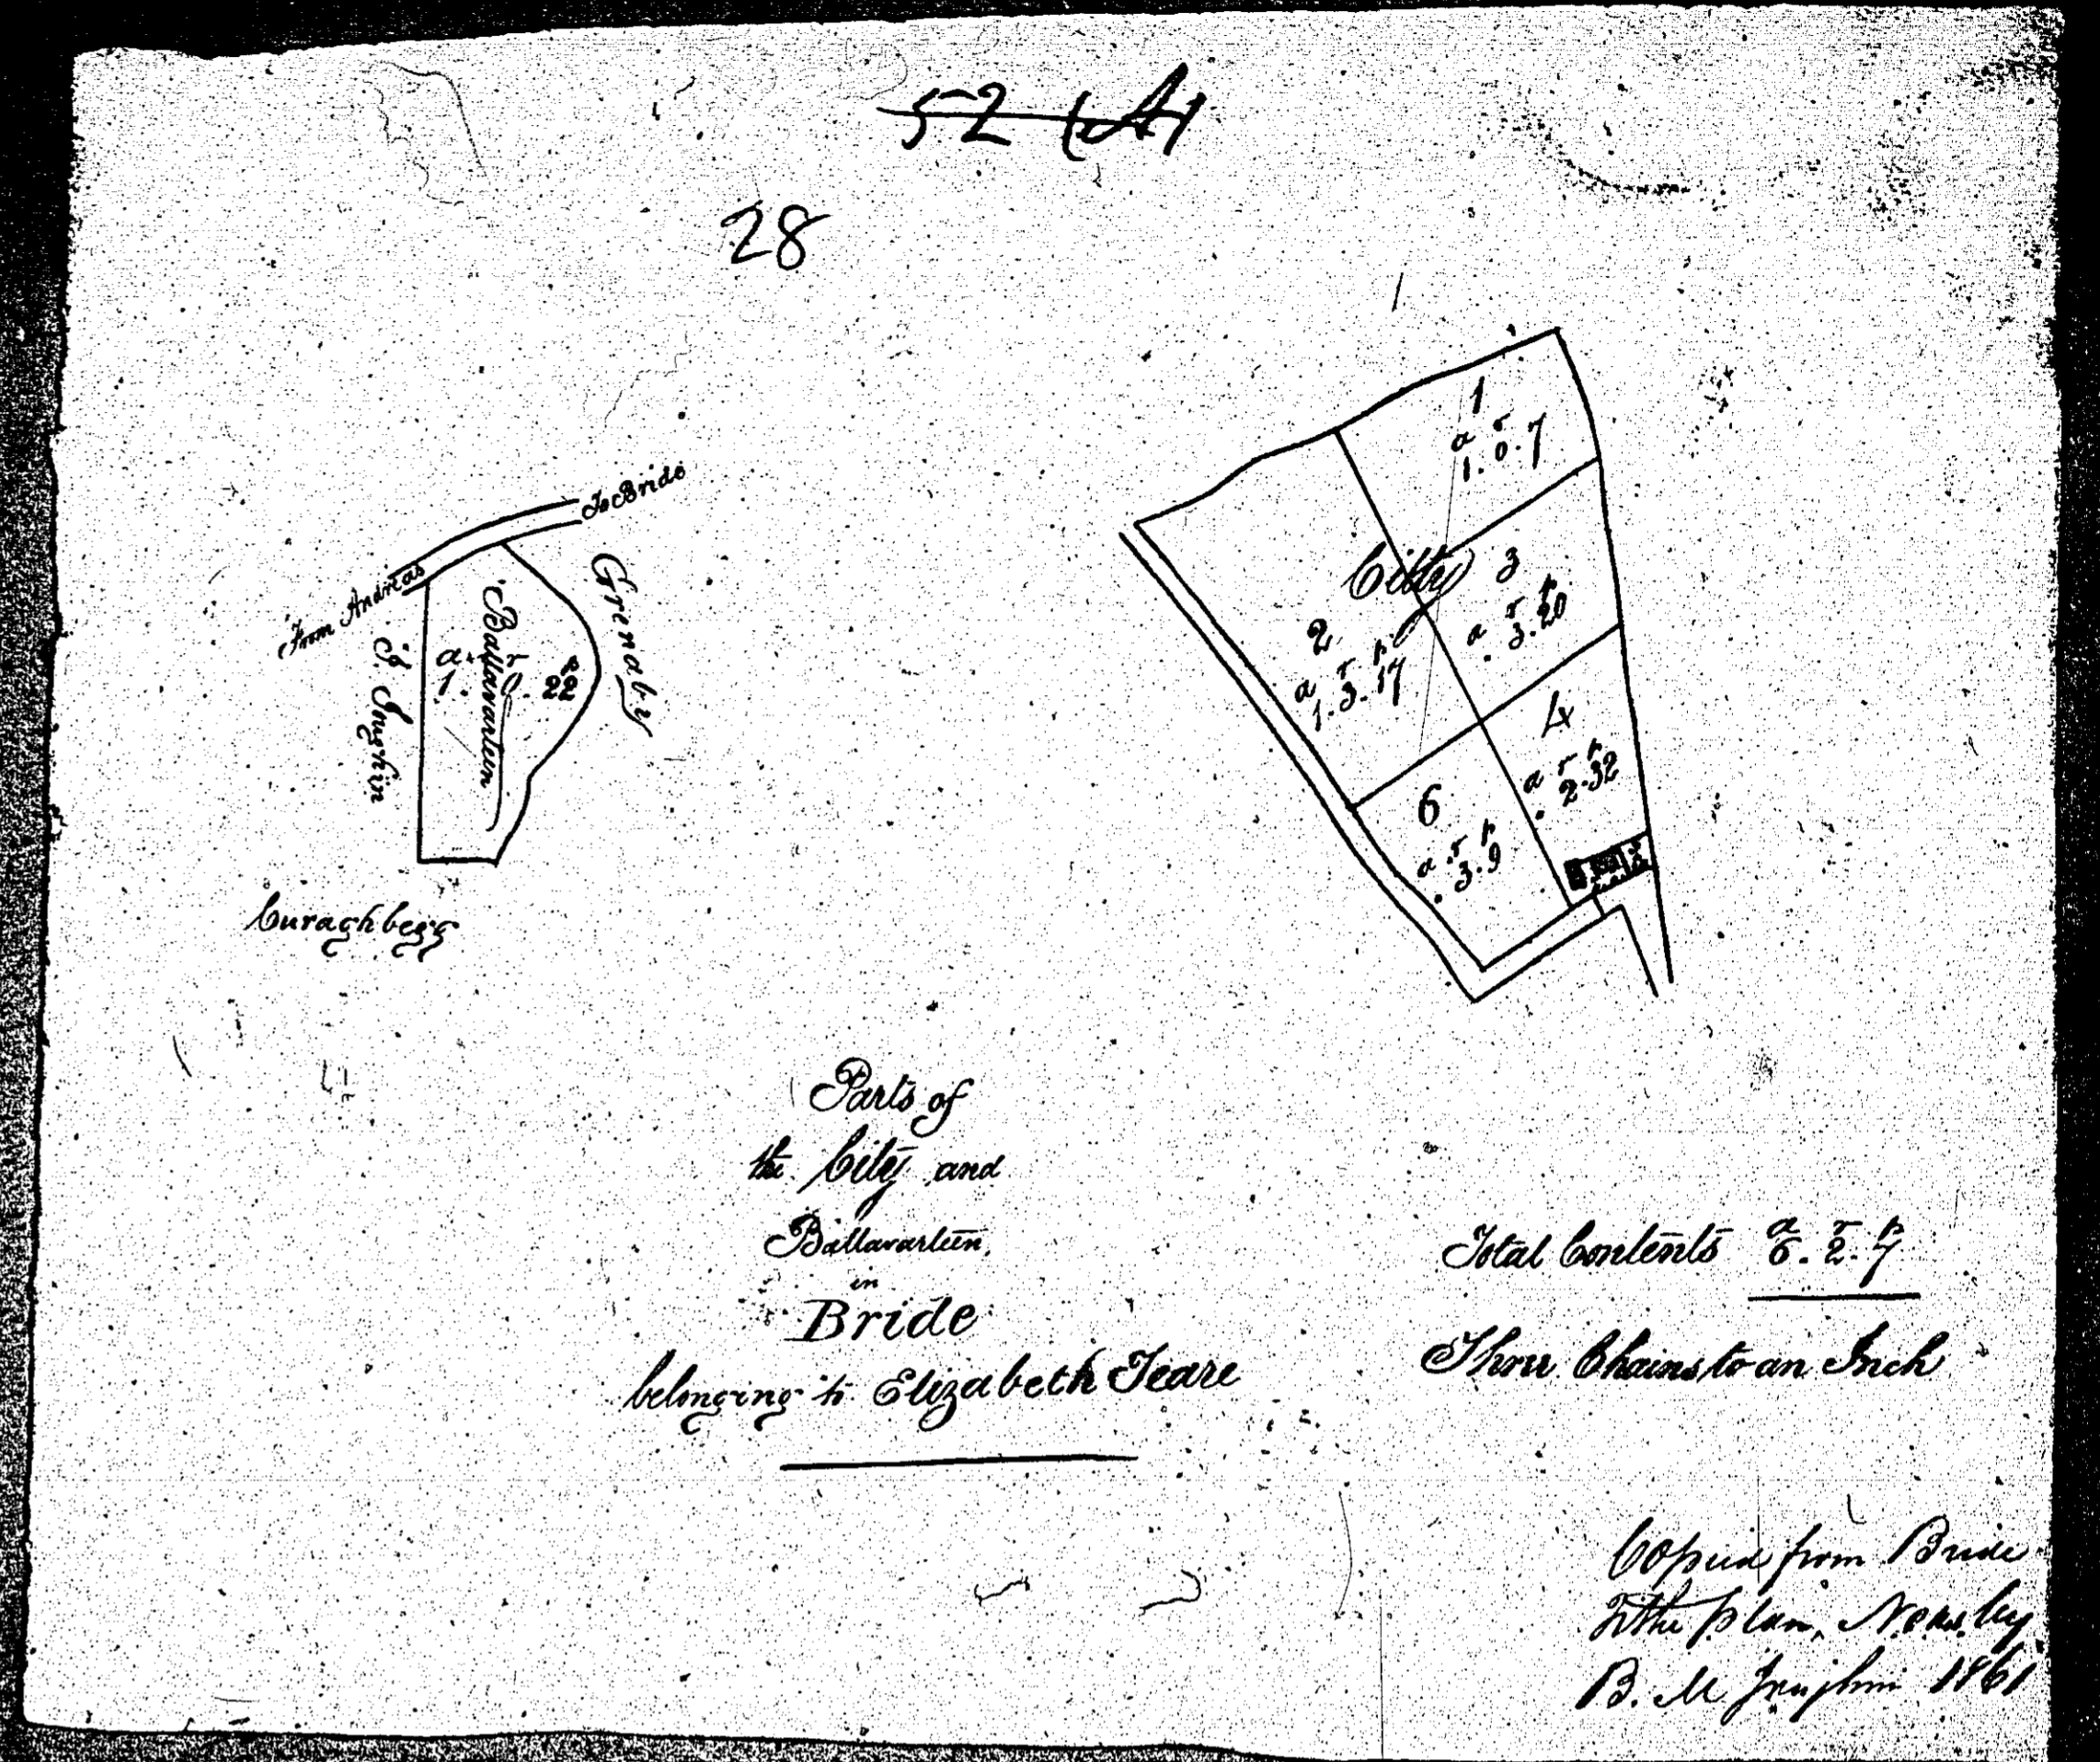 52 (A)
28
To Bride
From Andreas
Grenaby
Ballavarteen
a. r p
1. 0. 22
Curaghbegg
City
1
a r
1. 0. 7
2
a r p
1. 3. 17
3
a r p
. 3. 20
4
a r p
. 2. 32
6
a r p
. 3. 9
Parts of
the City and
Ballavarteen,
in
Bride
belonging to Elizabeth Teare
Total Contents a r p
6. 2. 7
Three Chains to an Inch
Copied from Bride
Tithe plan, by
B. M 1861